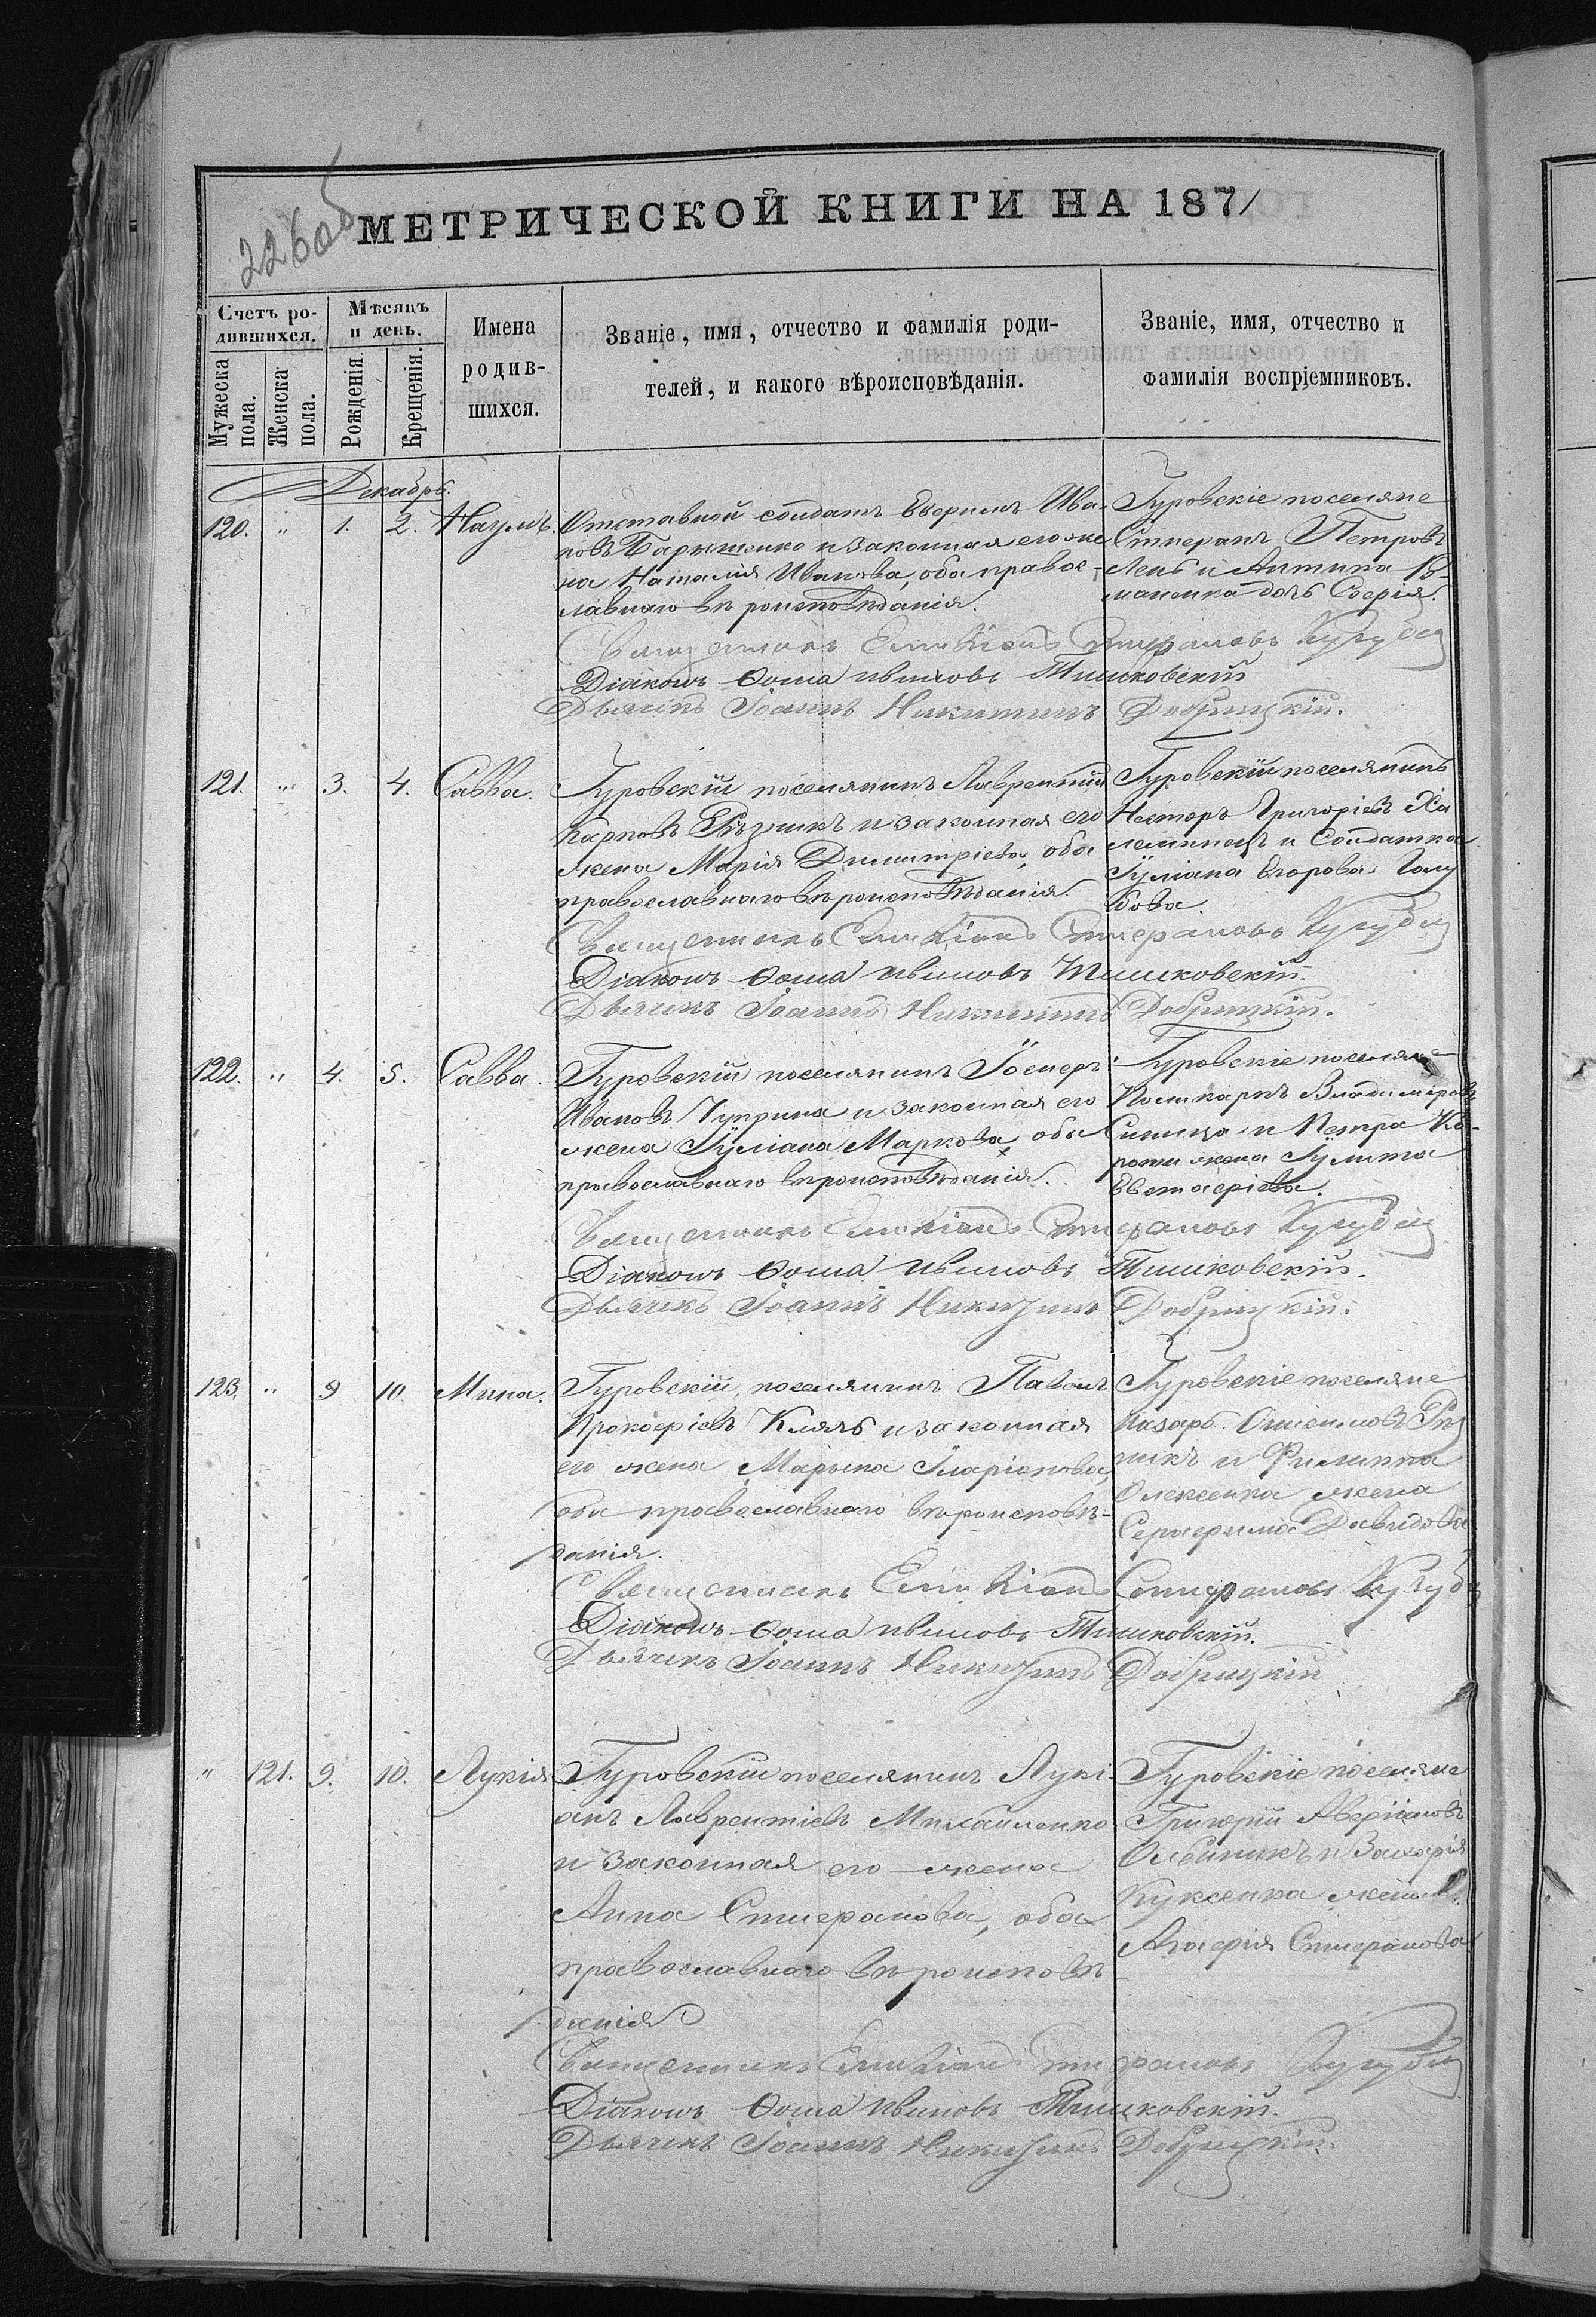 226об
МЕТРИЧЕСКОЙ КНИГИ НА 1871
Счетъ ро-
дившихся.
Мужеска пола.
Женска пола.
Мѣсяцъ
и день.
Рожденія
Крещенія.
Имена
родив-
шихся.
Званіе, имя, отчество и фамилія роди-
телей, и какого вѣроисповѣданія.
Званіе, имя, отчество и
фамилія воспріемниковъ.
Декабрь.
120. " 1. 2. Наумъ.
Отставной солдатъ Ефремъ Ива-
новъ Барышенко и законная его же
на Наталія Иванова, оба правос-
лавнаго вѣроисповѣданія.
Гуровскіе поселяне
Стефанъ Петровъ
и Антипа
дочь Софія.
Священникъ Емиліанъ Стефановъ
Діаконъ Ѳома Ивановъ Тишковскій
Дьячекъ Іоаннъ Никитинъ Добрицкій.
121. " 3. 4. Савва.
Гуровскій поселянинъ Лаврентій
Карповъ Рѣзникъ и законная его
жена Марія Димитріева, оба
православнаго вѣроисповѣданія.
Гуровскій поселянинъ
Несторъ Григоріевъ
и Солдатка
Іуліана Егорова Голу
бова.
Священникъ Емиліанъ Стефановъ
Діаконъ Ѳома Ивановъ Тишковскій.
Дьячекъ Іоаннъ Никитинъ Добрицкій.
122. " 4. 5. Савва.
Гуровскій поселянинъ Іосифъ
Ивановъ Чуприна и законная его
жена Іуліана Маркова, оба
православнаго вѣроисповѣданія.
Гуровскіе поселяне
Поликарпъ Владиміровъ
Синица и Петра Ко-
роти жена Іулита
Евстафіева.
Священникъ Емиліанъ Стефановъ
Діаконъ Ѳома Ивановъ Тишковскій.
Дьячекъ Іоаннъ Никитинъ Добрицкій.
123. " 9 10. Мина.
Гуровскій поселянинъ Павелъ
Прокофіевъ Клячь и законная
его жена Марьяна Иларіонова,
оба православнаго вѣроисповѣ-
данія.
Гуровскіе поселяне
Назаръ Онисимовъ Рѣз
никъ и Филиппа
Олексенка жена
Серафима Давидова
Священникъ Емиліанъ Стефановъ
Діаконъ Ѳома Ивановъ Тишковскій.
Дьячекъ Іоаннъ Никитинъ Добрицкій
" 121. 9. 10. Лукія
Гуровскій поселянинъ Лукі-
анъ Лаврентіевъ Михайленко
и законная его жена
Анна Стефанова, оба
православнаго вѣроисповѣ
данія
Гуровскіе поселяне
Григорій Аверіановъ
Олейникъ и Захарія
Куксенка жена
Агафія Стефанова
Священникъ Емиліанъ Стефановъ
Діаконъ Ѳома Ивановъ Тишковскій.
Дьячекъ Іоаннъ Никитинъ Добрицкій.